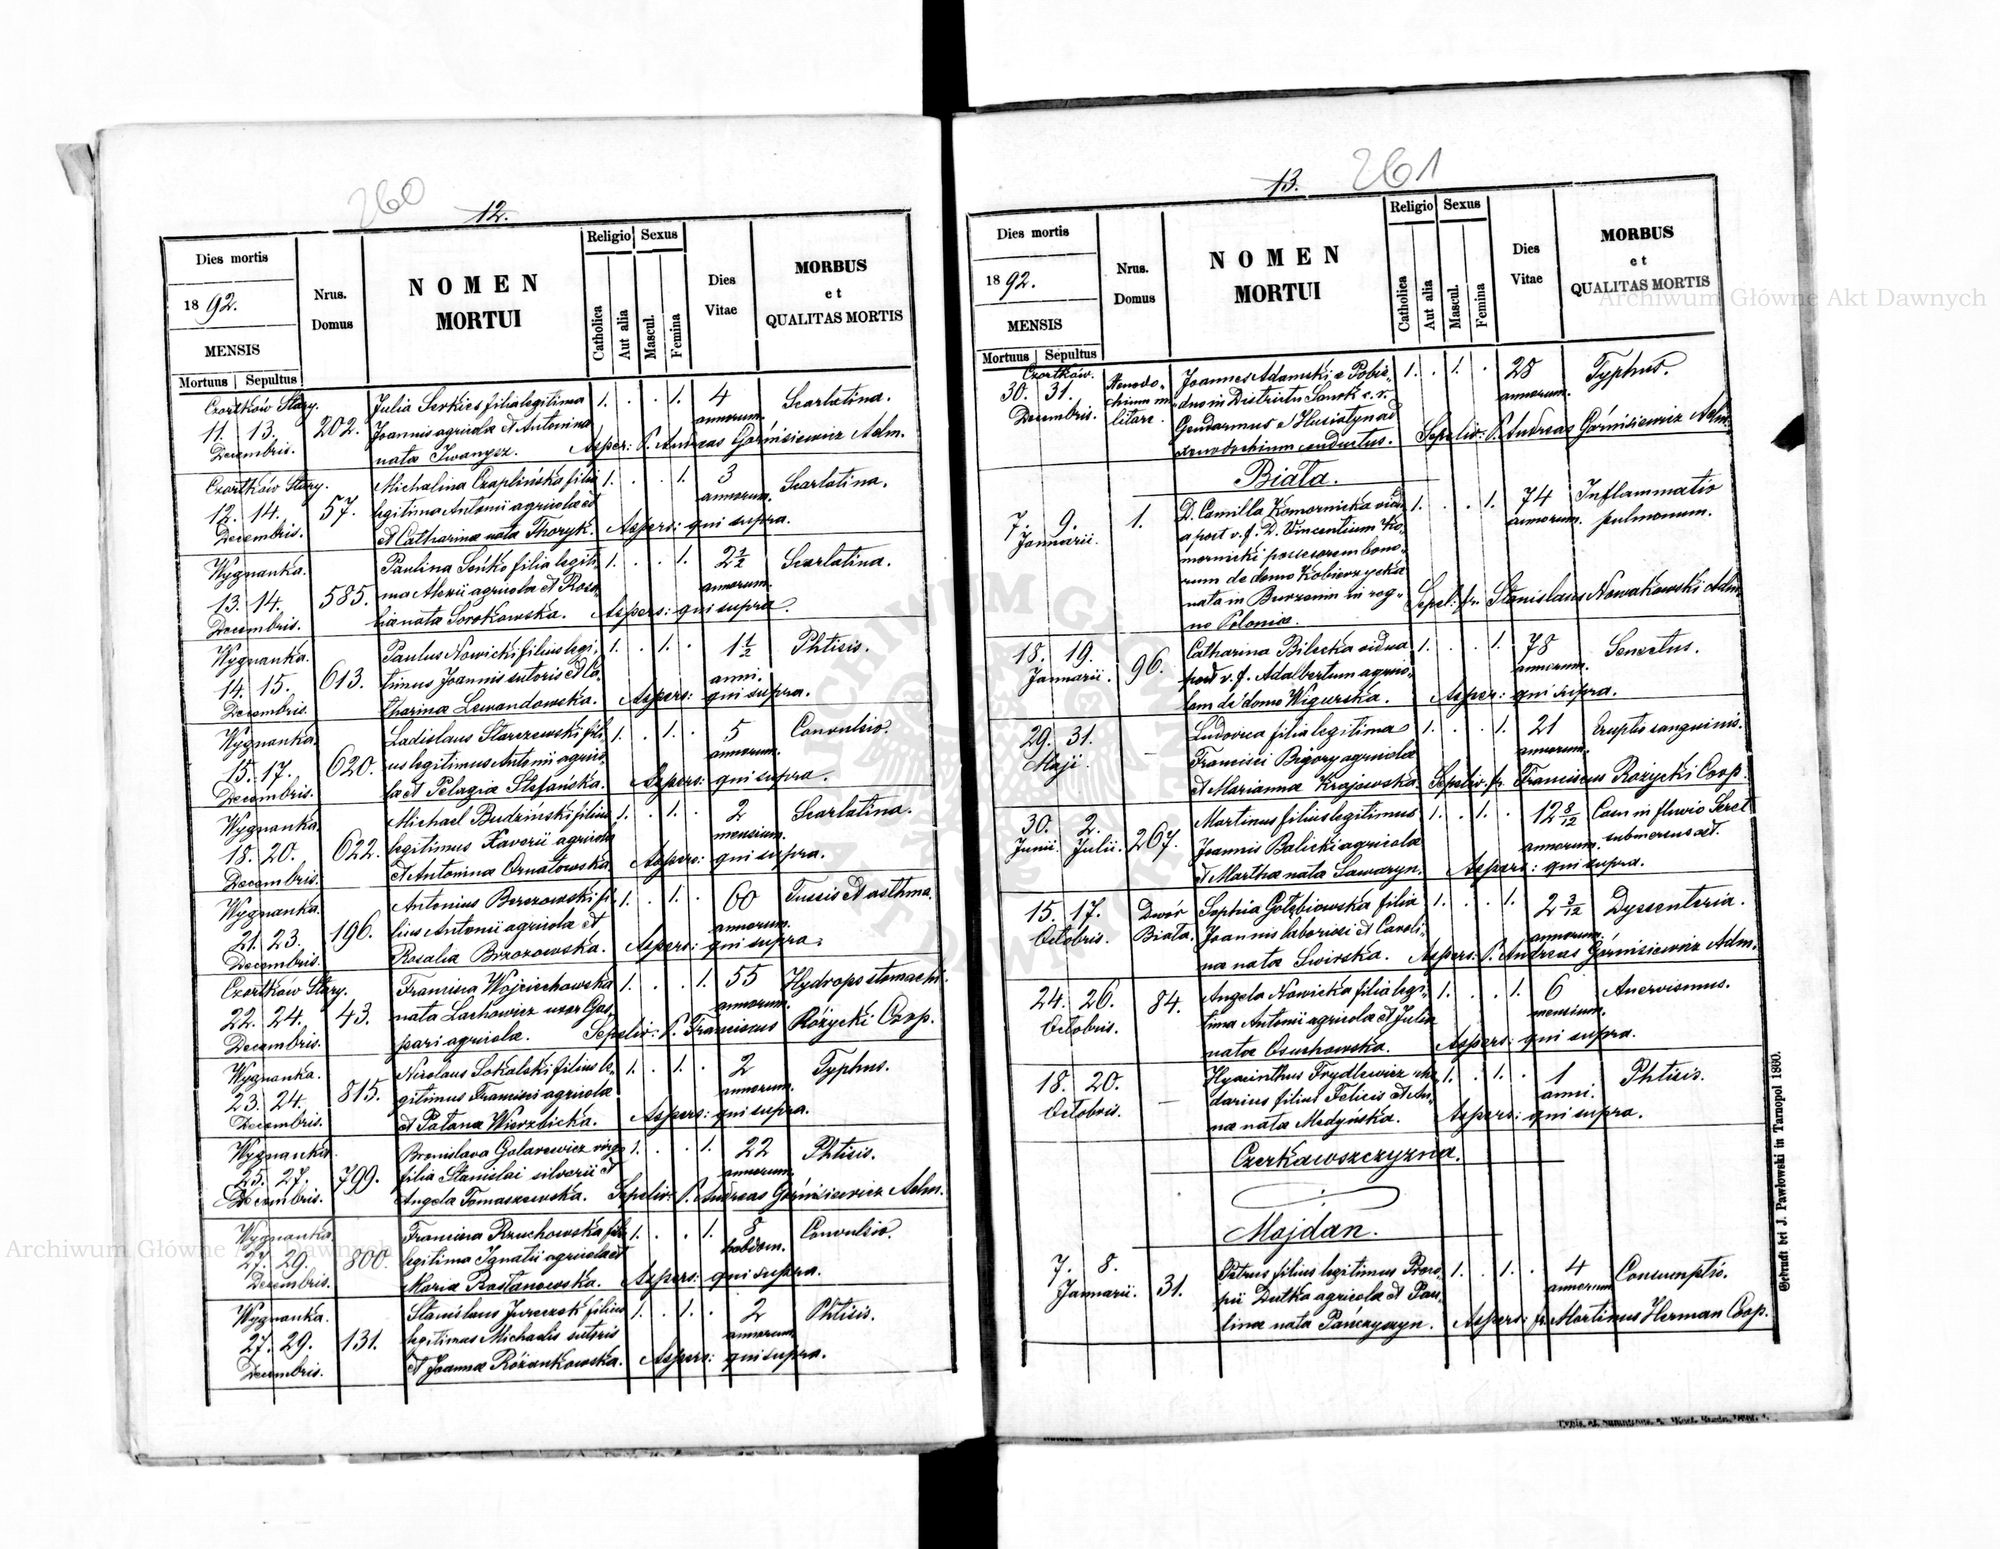 260
12.
Dies mortis
1892.
MENSIS
Mortuus | Sepultus
Nrus.
Domus
NOMEN
MORTUI
Religio
Catholica
Aut alia
Sexus
Mascul.
Femina
Dies
Vitae
MORBUS
et
QUALITAS MORTIS
Czortków Stary.
11. 13.
Decembris.
202.
Julia Serkies filia legitima
Joannis agricola et Antonina
nata Iwanycz.
1. . . 1.
4
annorum.
Scarlatina.
Asper: P. Andreas Górnisiewicz Adm.
Czortków Stary.
12. 14.
Decembris.
57.
Michalina Czaplińska filia
legitima Antonii agricola et
et Catharina nata Thoryk.
1. . . 1.
3
annorum.
Scarlatina.
Aspers: qui supra.
Wygnanka.
13. 14.
Decembris.
585.
Paulina Seńko filia legiti-
ma Alexii agricola et Rosa-
lia nata Sorokowska.
1. . . 1.
2 1/2
annorum.
Scarlatina.
Aspers: qui supra.
Wygnanka.
14. 15.
Decembris.
613.
Paulus Nowicki filius legi-
timus Joannis sutoris et Ca-
tharina Lewandowska.
1. . 1. .
1 1/2
anni.
Phtisis.
Aspers: qui supra.
Wygnanka.
15. 17.
Decembris.
620.
Ladislaus Starczewski fili-
us legitimus Antonii agrico-
la et Pelagia Stefańska.
1. . 1. .
5
annorum.
Convulsio.
Aspers: qui supra.
Wygnanka.
18. 20.
Decembris.
622.
Michael Budziński filius
legitimus Xaverii agricola
et Antonina Ornatowska.
1. . 1. .
2
mensium.
Scarlatina.
Aspers: qui supra.
Wygnanka.
21. 23.
Decembris.
196.
Antonius Berezowski fi-
lius Antonii agricola et
Rosalia Brzozowska.
1. . 1. .
60
annorum.
Tussis et asthma.
Aspers: qui supra.
Czortkow Stary.
22. 24.
Decembris.
43.
Francisca Wojciechowska
nata Lachowicz uxor Gas-
pari agricola.
1. . . 1.
55
annorum.
Hydrops stomachi.
Sepeliv: P. Franciscus Różycki Coop.
Wygnanka.
23. 24.
Decembris.
815.
Nicolaus Sokalski filius le-
gitimus Francisci agricola
et Patana Wierzbicka.
1. . 1. .
2
annorum.
Typhus.
Aspers: qui supra.
Wygnanka.
25. 27.
Decembris.
799.
Bronislava Golarewicz virgo
filia Stanislai silverii et
Angela Tomaszewska.
1. . . 1.
22
annorum.
Phtisis.
Sepeliv: P. Andreas Górnisiewicz Adm.
Wygnanka.
27. 29.
Decembris.
800.
Francisca Kruchowska filia
legitima Ignatii agricola et
Maria Rastanowska.
1. . . 1.
8
hebdom.
Convulsio.
Aspers: qui supra.
Wygnanka.
27. 29.
Decembris.
131.
Stanislaus Jureczek filius
legitimus Michaelis sutoris
et Joanna Różankowska.
1. . 1. .
2
annorum.
Phtisis.
Aspers: qui supra.
261
13.
Dies mortis
1892.
MENSIS
Mortuus | Sepultus
Nrus.
Domus
NOMEN
MORTUI
Religio
Catholica
Aut alia
Sexus
Mascul.
Femina
Dies
Vitae
MORBUS
et
QUALITAS MORTIS
Czortków.
30. 31.
Decembris.
Xenodo-
chium mi-
litare.
Joannes Adamski e Pobie-
dno in Districtu Sanok c. r.
Gendarmus e Husiatyn ad
xenodochium conductus.
1. . 1. .
28
annorum.
Typhus.
Sepeliv: P. Andreas Górnisiewicz Adm.
Biała.
7. 9.
Januarii.
1.
D. Camilla Komornicka vidu-
a post v. f. D. Vincentium Ko-
mornicki possesorem bono-
rum de domo Kobierzycka
nata in Burzenin in reg-
no Polonia.
1. . . 1.
74
annorum.
Inflammatio
pulmonum.
Sepel: fr. Stanislaus Nowakowski Adm.
18. 19.
Januarii.
96.
Catharina Bilecka vidua
post v. f. Adalbertum agrico-
lam de domo Wigurska.
1. . . 1.
78
annorum.
Senectus.
Asper: qui supra.
29. 31.
Maji
—
Ludovica filia legitima
Francisci Bigory agricola
et Marianna Krajowska.
1. . . 1.
21
annorum.
Eruptio sanguinis.
Sepeliv. fr. Franciscus Rożycki Coop.
30. 2.
Junii. Julii.
267.
Martinus filius legitimus
Joannis Balicki agricola
et Martha nata Sawaryn.
1. . 1. .
12 8/12
annorum.
Casu in fluvio Seret
submersus est.
Aspers: qui supra.
15. 17.
Octobris.
Dwór
Biała.
Sophia Gołębiowska filia
Joannis laboriosi et Caroli-
na nata Swirska.
1. . . 1.
2 3/12
annorum.
Dyssenteria.
Aspers: P. Andreas Górnisiewicz Adm.
24. 26.
Octobris.
84.
Angela Nowicka filia legi-
tima Antonii agricola et Julia
nata Osuchowska.
1. . . 1.
6
mensium.
Anervismus.
Aspers: qui supra.
18. 20.
Octobris.
—
Hyacinthus Frydlewicz
darius filius Felicis et An-
na nata Medyńska.
1. . 1. .
1
anni.
Phtisis.
Aspers: qui supra.
Czerkawszczyzna.
Majdan.
7. 8.
Januarii.
31.
Petrus filius legitimus Proco-
pii Dutka agricola et Pau-
lina nata Pańczyszyn.
1. . 1. .
4
annorum
Consumptio.
Aspers: fr. Martinus Herman Coop.
Gedruckt bei J. Pawłowski in Tarnopol 1880.
Archiwum Główne Akt Dawnych
Archiwum Główne Akt Dawnych
ARCHIWUM GŁÓWNE AKT DAWNYCH